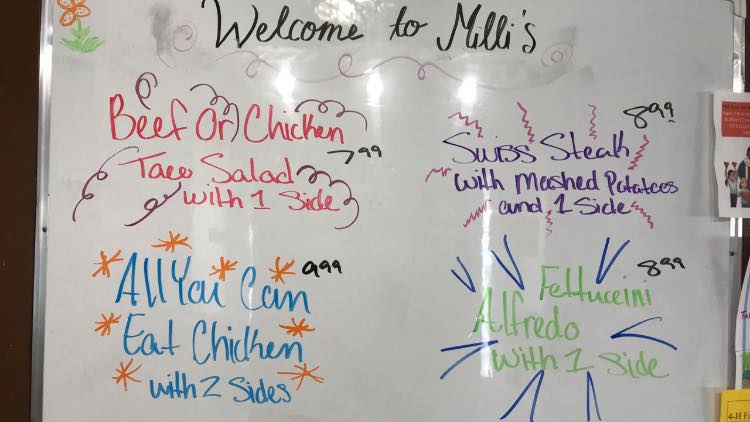 Welcome to Milli's
Beef Or Chicken
Taco Salad 7.99
with 1 Side
Swiss Steak 8.99
with Mashed Potatoes
and 1 Side
All You Can 9.99
Eat Chicken
with 2 Sides
Fettuceini 8.99
Alfredo
with 1 Side
4-H